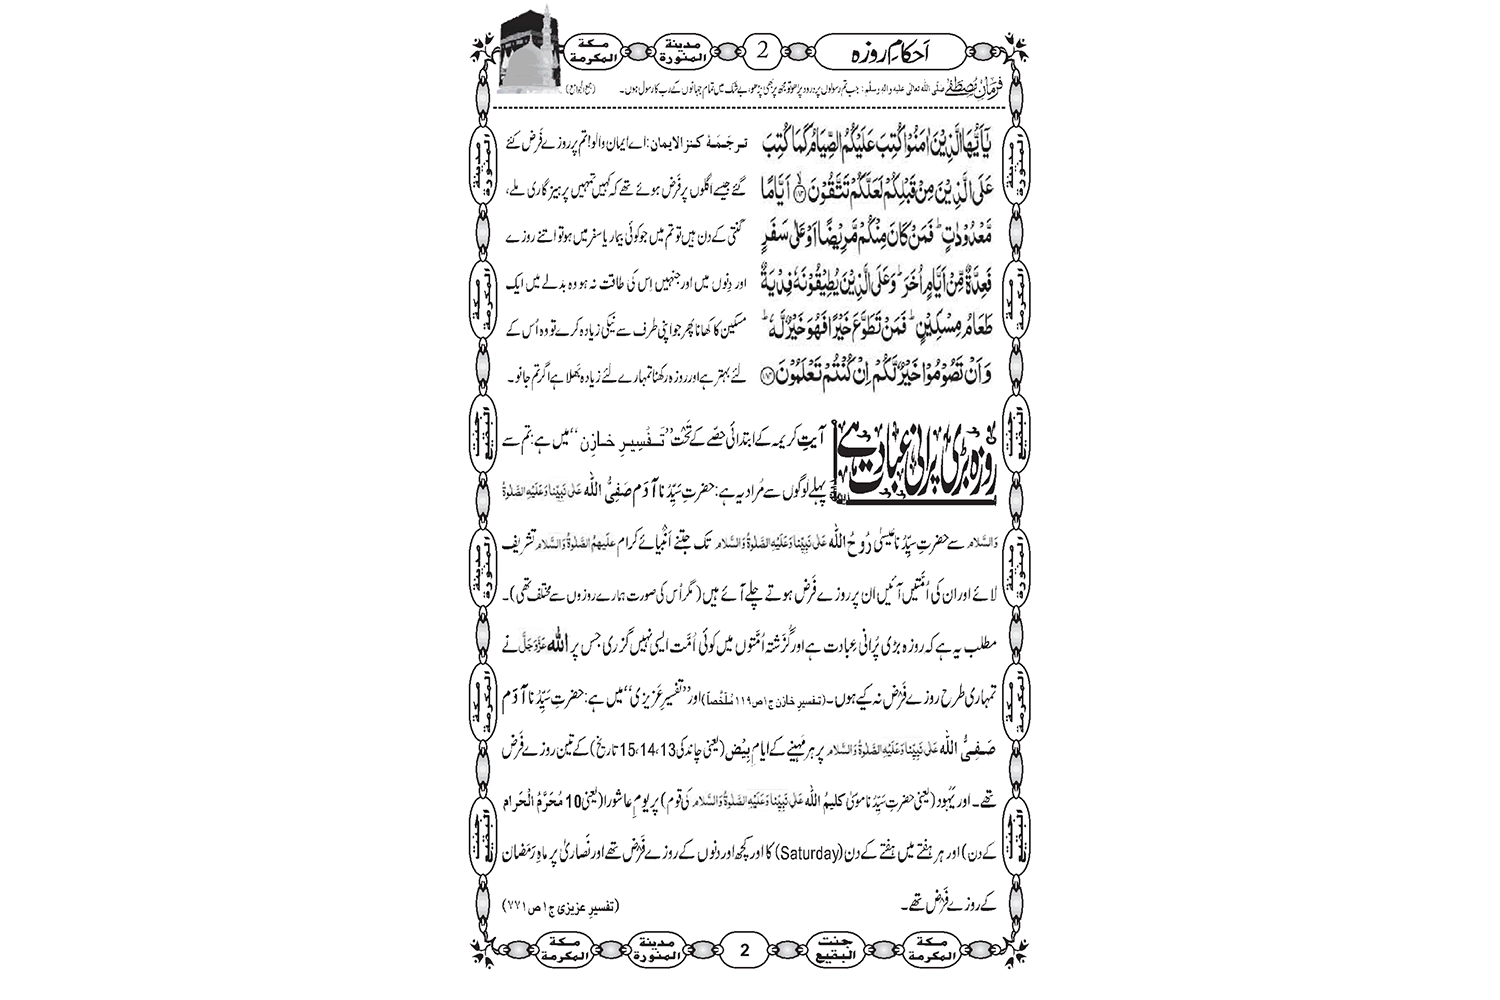 مكة المكرمة
مدينة المنورة
2
اَحکامِ روزہ
فرمانِ مُصطَفٰے صلَّی اللہ تعالٰی علیہ واٰلہٖ وسلَّم: جب تم رسولوں پر درود پڑھو تو مجھ پر بھی پڑھو، بے شک میں تمام جہانوں کے رب کا رسول ہوں۔ (جمع الجوامع)
یٰۤاَیُّهَا الَّذِیْنَ اٰمَنُوْا كُتِبَ عَلَیْكُمُ الصِّیَامُ كَمَا كُتِبَ
عَلَى الَّذِیْنَ مِنْ قَبْلِكُمْ لَعَلَّكُمْ تَتَّقُوْنَۙ(۱۸۳) اَیَّامًا
مَّعْدُوْدٰتٍؕ فَمَنْ كَانَ مِنْكُمْ مَّرِیْضًا اَوْ عَلٰى سَفَرٍ
فَعِدَّةٌ مِّنْ اَیَّامٍ اُخَرَؕ وَ عَلَى الَّذِیْنَ یُطِیْقُوْنَهٗ فِدْیَةٌ
طَعَامُ مِسْكِیْنٍؕ فَمَنْ تَطَوَّعَ خَیْرًا فَهُوَ خَیْرٌ لَّهٗؕ
وَ اَنْ تَصُوْمُوْا خَیْرٌ لَّكُمْ اِنْ كُنْتُمْ تَعْلَمُوْنَ(۱۸۴)
ترجَمۂ کنز الایمان: اے ایمان والو! تم پر روزے فَرض کئے
گئے جیسے اگلوں پر فَرض ہوئے تھے کہ کہیں تمہیں پرہیز گاری ملے،
گنتی کے دن ہیں تو تم میں جو کوئی بیمار یا سفر میں ہو تو اتنے روزے
اور دِنوں میں اور جنہیں اِس کی طاقت نہ ہو وہ بدلے میں ایک
مسکین کا کھانا پھر جو اپنی طرف سے نیکی زیادہ کرے تو وہ اُس کے
لئے بہتر ہے اور روزہ رکھنا تمہارے لئے زیادہ بھلا ہے اگر تم جانو۔
روزہ بڑی پرانی عبادت ہے
آیتِ کریمہ کے ابتدائی حصّے کے تَحت ’’تَفْسِیرِ خازِن‘‘ میں ہے: تم سے
پہلے لوگوں سے مُراد یہ ہے: حضرتِ سَیِّدُنا آدَم صَفِیُّ اللّٰه عَلٰی نَبِیِّنا وَعَلَیْهِ الصَّلٰوۃُ
وَالسَّلام سے حضرتِ سَیِّدُنا عیسیٰ رُوحُ اللّٰه عَلٰی نَبِیِّنا وَعَلَیْهِ الصَّلٰوۃُ وَالسَّلام تک جتنے اَنْبِیائے کرام علیهمُ الصَّلٰوۃُ وَالسَّلام تشریف
لائے اور ان کی اُمَّتیں آئیں ان پر روزے فَرض ہوتے چلے آئے ہیں (مگر اُس کی صورت ہمارے روزوں سے مختلف تھی)۔
مطلب یہ ہے کہ روزہ بڑی پُرانی عِبادت ہے اور گُزَشتہ اُمَّتوں میں کوئی اُمَّت ایسی نہیں گزری جس پر اللّٰه عَزَّوَجَلَّ نے
تمہاری طرح روزے فَرض نہ کیے ہوں۔ (تفسیرِ خازن ج۱ ص۱۱۹ مُلَخَّصاً) اور ’’تَفسیرِ عَزیزی‘‘ میں ہے: حضرتِ سَیِّدُنا آدَم
صَفِیُّ اللّٰه عَلٰی نَبِیِّنا وَعَلَیْهِ الصَّلٰوۃُ وَالسَّلام پر ہر مہینے کے ایامِ بِیْض (یعنی چاند کی 15،14،13 تاریخ) کے تین روزے فَرض
تھے۔ اور یَہُود (یعنی حضرتِ سَیِّدُنا موسٰی کلیمُ اللّٰه عَلٰی نَبِیِّنا وَعَلَیْهِ الصَّلٰوۃُ وَالسَّلام کی قوم) پر یومِ عاشورا (یعنی 10 مُحَرَّمُ الْحَرام
کے دن) اور ہر ہفتے میں ہفتے کے دن (Saturday) کا اور کچھ اور دنوں کے روزے فَرض تھے اور نَصاریٰ پر ماہِ رَمَضان
کے روزے فَرض تھے۔ (تفسیرِ عزیزی ج۱ ص۷۷۱)
مدينة المنورة
مكة المكرمة
جنت البقيع
مدينة المنورة
مكة المكرمة
جنت البقيع
مدينة المنورة
مكة المكرمة
جنت البقيع
مدينة المنورة
مكة المكرمة
جنت البقيع
مكة المكرمة
مدينة المنورة
2
جنت البقيع
مكة المكرمة